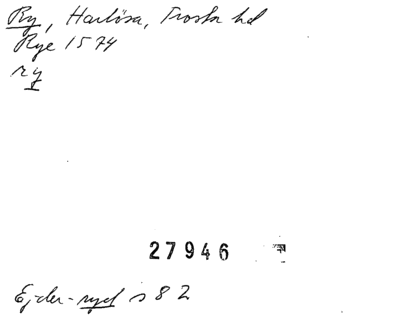 Ry, Harlösa, Frosta hd
Rye 1574
ry
27946
Ejder-ryd s 82